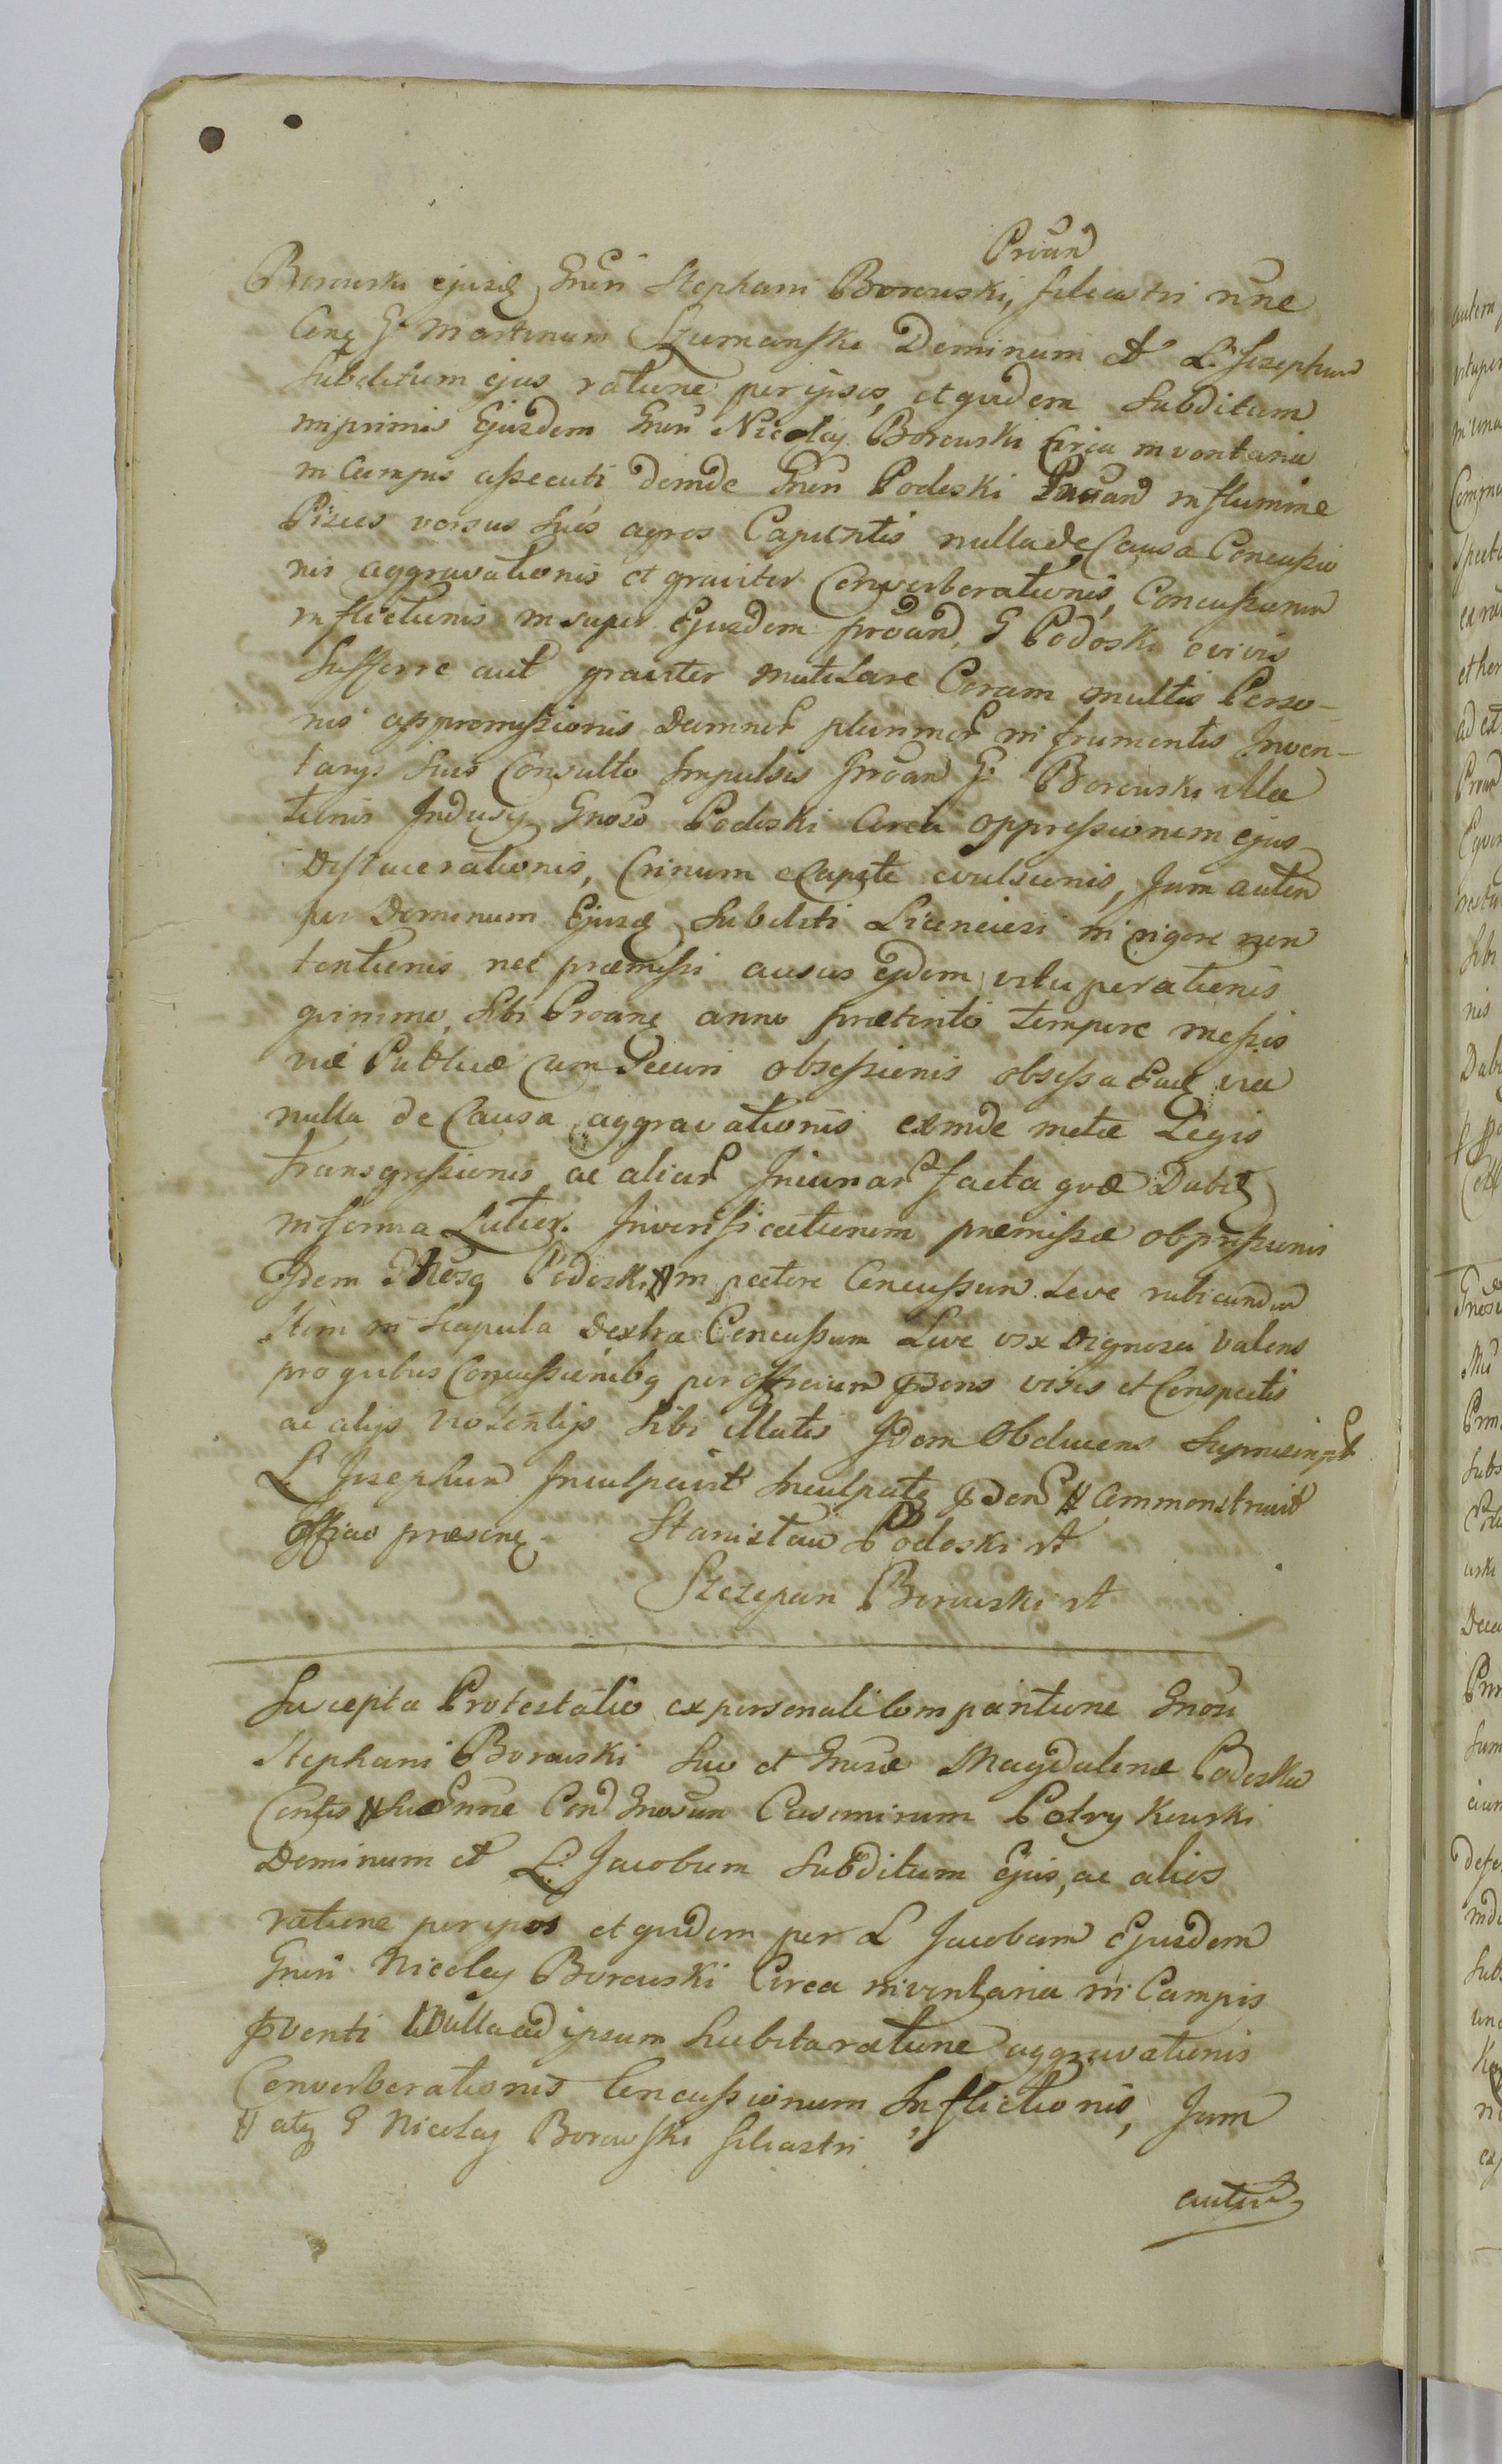 Proan̄d
Borouski ejusdē Gnēri Stephani Borouski, filiastri nūne
Conq̄ G. Martinum Szumanski Dominum et L. Josephum
Subditum ejus ratione per ipsos, et quidem Subditum
inprimis Ejusdem Gnēri Nicolaj Borouski Circa inventaria
in Campis assecuti deinde Gnēri Podoski Proan̄d in flumine
Pisces versus suos agros Capientis nulla de Causa Concussio
nis aggravationis et graviter Converberationis, Concussionum
inflictionis insuper Ejusdem proan̄d, G Podoski e vivis
Sufferre aut graviter mutilare Coram multis Perso-
nis appromissionis Damnor̄ plurimor̄ in frumentis Inven-
tarys suis Consulto Impulsis Proan̄d G. Borouski illa
tionis Indusij Gnoso Podoski Circa oppressionem ejus
Dislacerationis, Crinum e Capite evulsionis, Jam autem
per Dominum Ejusdē Subditi Licenciosi in rigore non
tentionis nec praemissi ausus ejdem vituperationis
quinimo, Sibi Proanē anno praeterito tempore messis
viae Publicae Cum Securi obsessionis obsessa Eaē via
nulla de Causa aggravationis exinde metae Legis
transgressionis ac aliar̄ Injuriar̄ facta quae Dabit
in forma Latior. In verificationem praemissae oppressionis
Idem Gnosq̄ Podoski # in pectore Concussum Leve rubicundum
Item in Scapula dextra Concussum Live vix Dignosci Valens
pro quibus Concussionibq̄ per officium p̄sens visis et Conspectis
ac alijs violentijs Sibi illatis Idem Obducens Supmeinpt
L. Josephum Inculpavit Inculpatq̄ p̄sen # Commonstravit
Officio praesenq̄. Stanisław Podoski rt
Szczepan Borouski rt
Suscepta Protestatio ex personali Comparitione Gnosi
Stephani Borouski Suo et Gnosae Magdalenae Podoska
Contis # suae Gnne Con̄d Gnosum Casimirum Petrykouski
Dominum et L. Jacobum Subditum Ejus, ac alios
ratione per ipsos et quidem per L Jacobum Ejusdem
Gnēri Nicolaj Borouski Circa inventaria in Campis
p̄venti Nulla ad ipsum habita ratione aggravationis
Converberationis Concussionum Inflictionis, Jam
# atq̄ G Nicolaj Borowski filiastri
autem